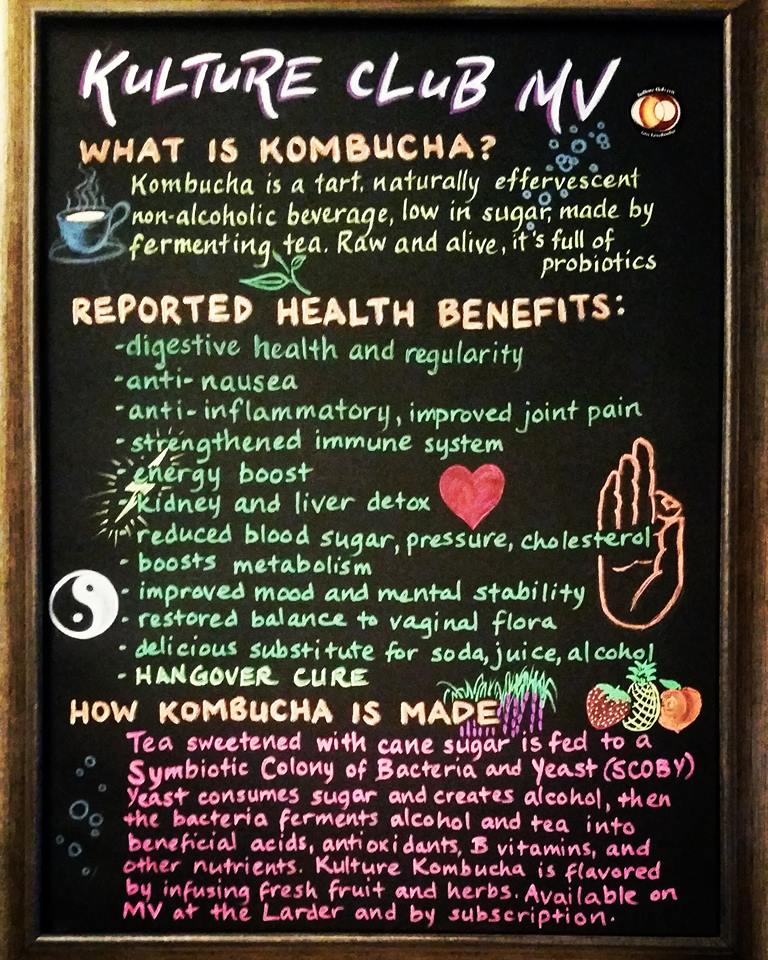 KULTURE CLUB MV
WHAT IS KOMBUCHA?
Kombucha is a tart, naturally effervescent
non-alcoholic beverage, low in sugar, made by
fermenting tea. Raw and alive, it's full of
probiotics
REPORTED HEALTH BENEFITS:
-digestive health and regularity
-anti-nausea
-anti-inflammatory, improved joint pain
-strengthened immune system
-energy boost
-kidney and liver detox
-reduced blood sugar, pressure, cholesterol
-boosts metabolism
-improved mood and mental stability
-restored balance to vaginal flora
-delicious substitute for soda, juice, alcohol
-HANGOVER CURE
HOW KOMBUCHA IS MADE
Tea sweetened with cane sugar is fed to a
Symbiotic Colony of Bacteria and Yeast (SCOBY)
Yeast consumes sugar and creates alcohol, then
the bacteria ferments alcohol and tea into
beneficial acids, antioxidants, B vitamins, and
other nutrients. Kulture Kombucha is flavored
by infusing fresh fruit and herbs. Available on
MV at the Larder and by subscription.